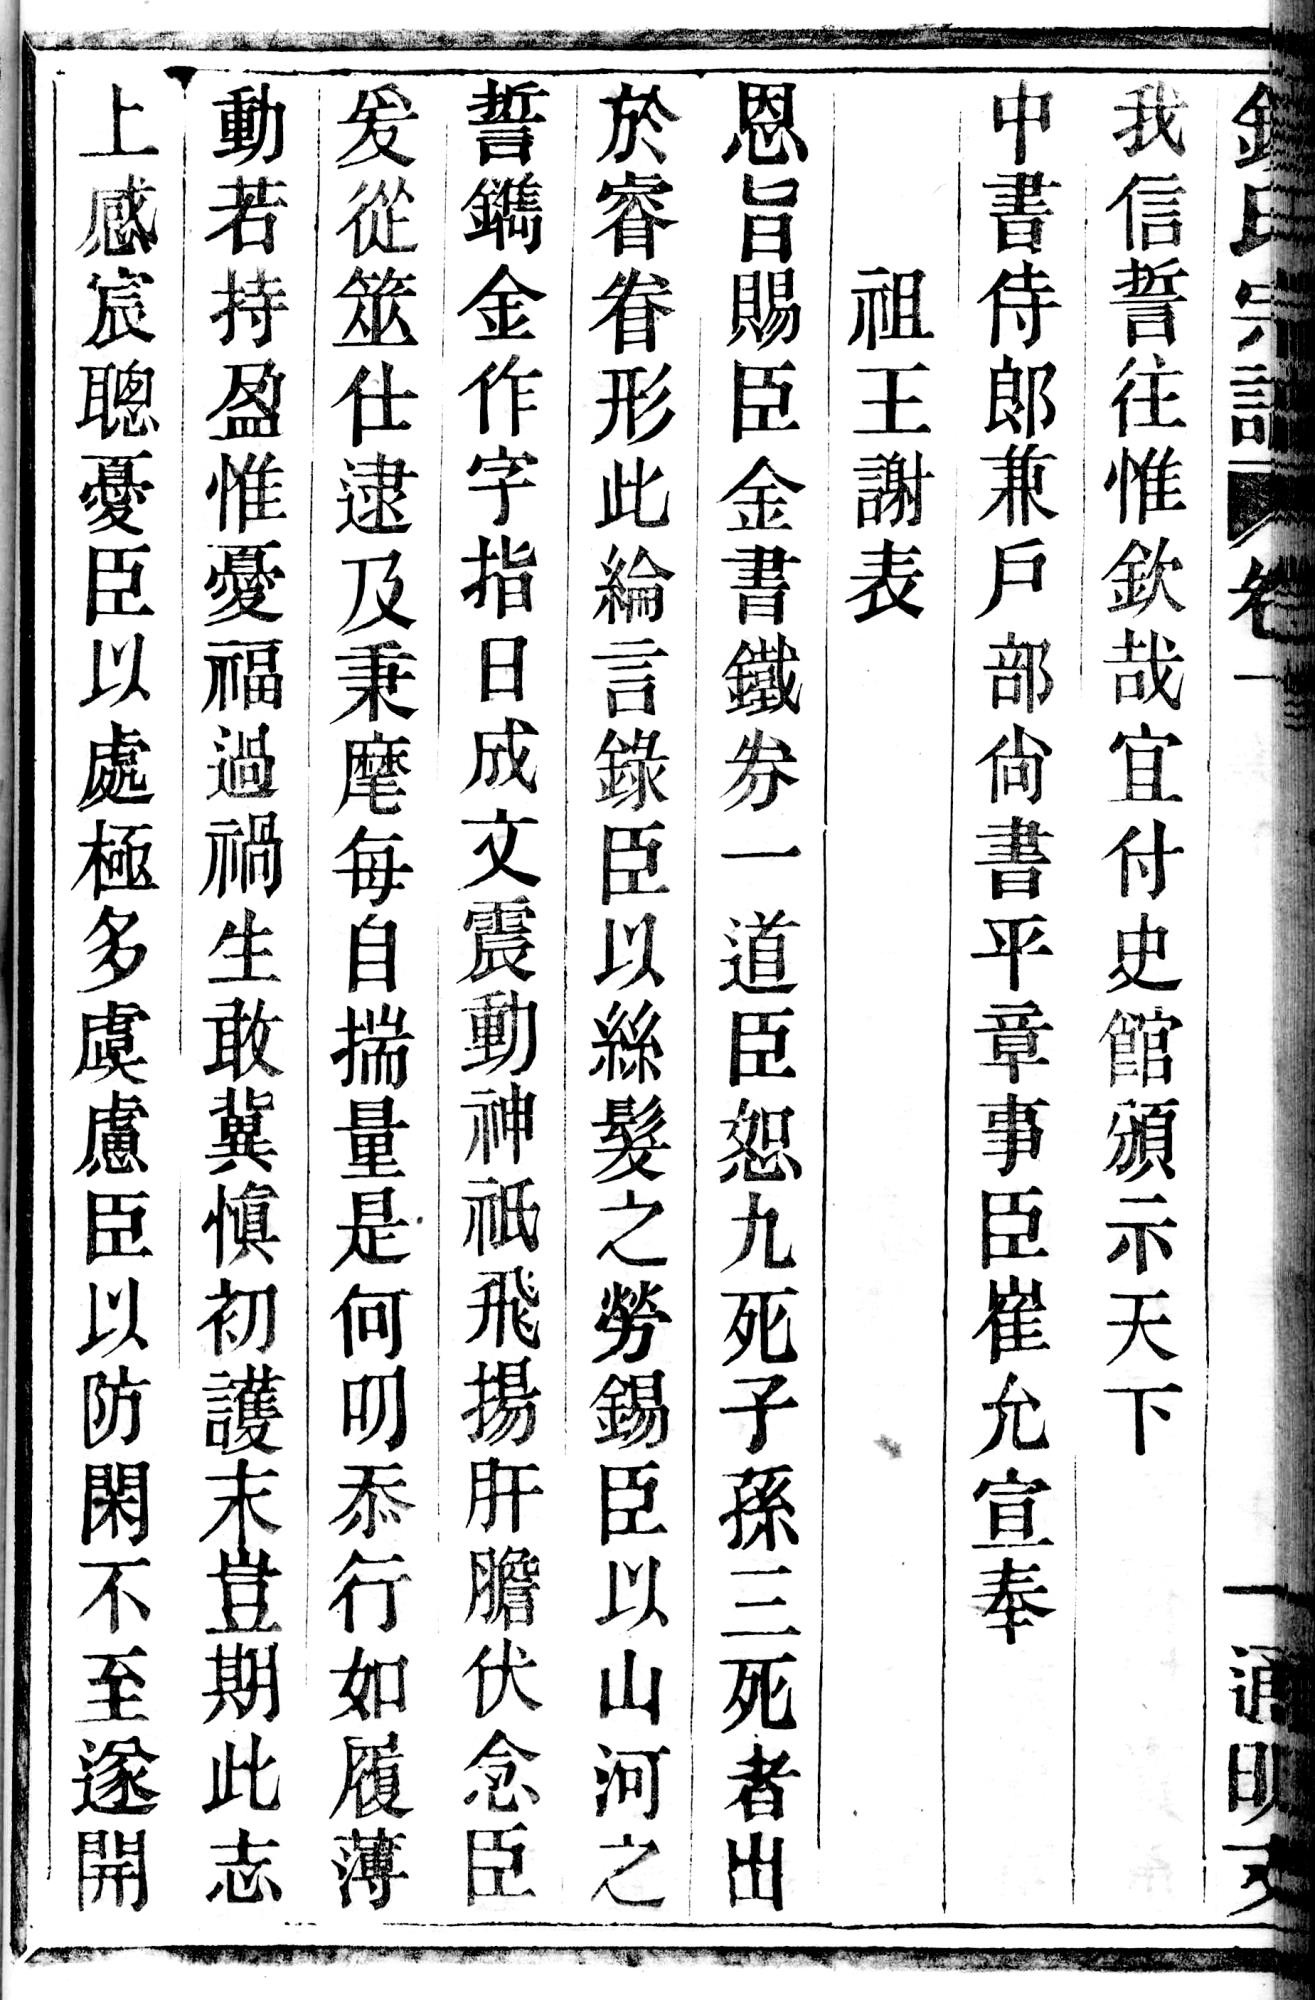 錢氏宗譜 卷一 一 通明
我信誓往惟欽哉宜付史館頒示天下
中書侍郎兼戶部尚書平章事臣崔允宣奉
祖王謝表
恩旨賜臣金書鐵券一道臣恕九死子孫三死者出
於睿眷形此綸言錄臣以絲髮之勞錫臣以山河之
誓鐫金作字指日成文震動神祇飛揚肝膽伏念臣
爰從筮仕逮及秉麾每自揣量是何叨忝行如履薄
動若持盈惟憂福過禍生敢冀慎初護末豈期此志
上感宸聰憂臣以處極多虞慮臣以防閑不至遂開